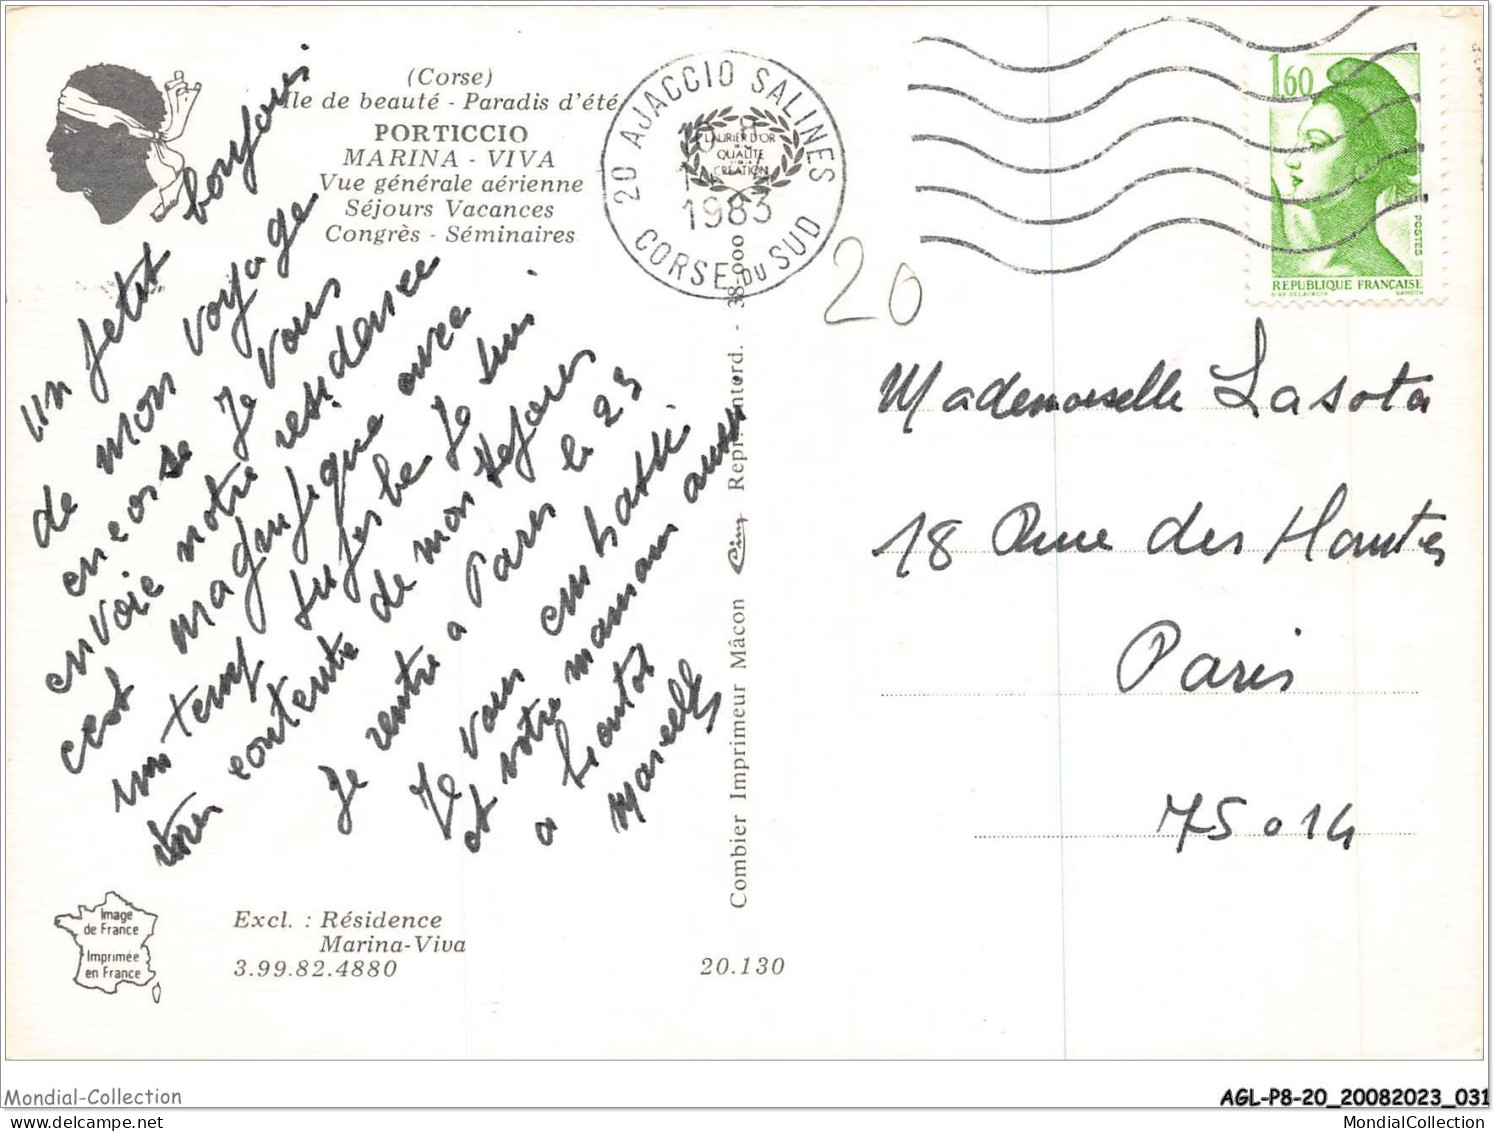 (Corse)
Ile de beauté - Paradis d'été
PORTICCIO
MARINA - VIVA
Vue générale aérienne
Séjours Vacances
Congrès - Séminaires
20 AJACCIO SALINES
CORSE DU SUD
1983
LAURIER D'OR
QUALITE
CREATION
1,60
POSTES
REPUBLIQUE FRANÇAISE
D'AP. DELACROIX GANDON
20
un petit bonjour
de mon voyage
en corse Je vous
envoie notre residence
cest magenfique avec
un temp superbe Je sui
très contente de mon sejours
Je rentre a Paris le 23
Je vous embrasse
et votre maman aussi
a bientot
Marcelle
Mademoiselle Lasota
18 Rue des Hautes
Paris
75014
Combier Imprimeur Mâcon Cim Repr. 38-000
Image
de France
Imprimée
en France
Excl. : Résidence
Marina-Viva
3.99.82.4880
20.130
Mondial-Collection
AGL-P8-20_20082023_031
MondialCollection.com
MondialCollection